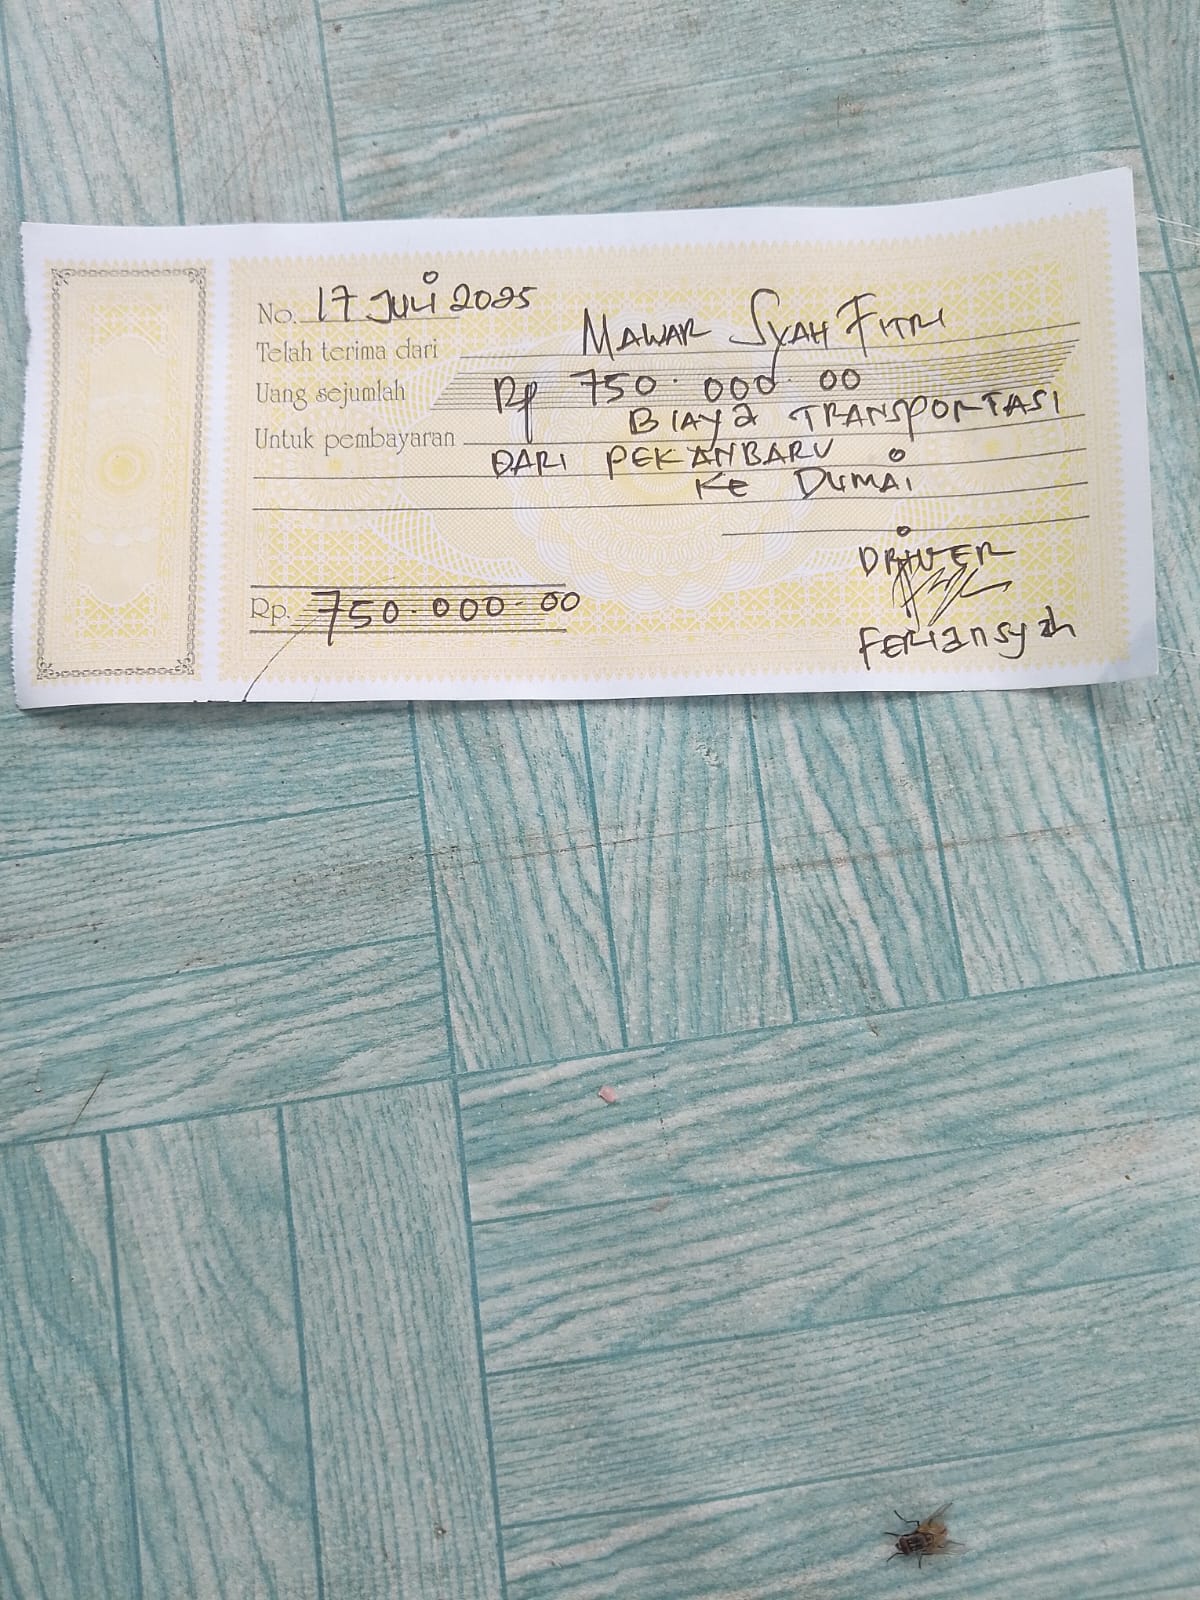 No. 17 JULI 2025
Telah terima dari MAWAR SYAH FITRI
Uang sejumlah Rp 750.000.00
Untuk pembayaran BIAYA TRANSPORTASI
DARI PEKANBARU
KE DUMAI
DRIVER
Rp. 750.000.00
FERIANSYAH